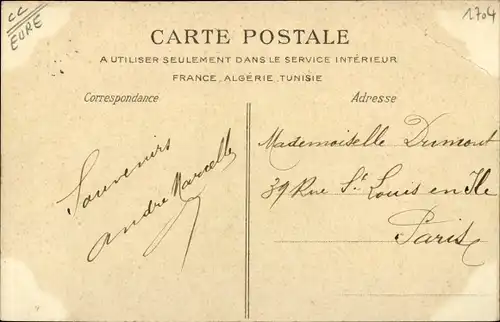 CC
EURE
1704
CARTE POSTALE
A UTILISER SEULEMENT DANS LE SERVICE INTÉRIEUR
FRANCE, ALGÉRIE, TUNISIE
Correspondance
Adresse
Souvenirs
André Marcelle
Mademoiselle Dumont
39 Rue St. Louis en Ile
Paris